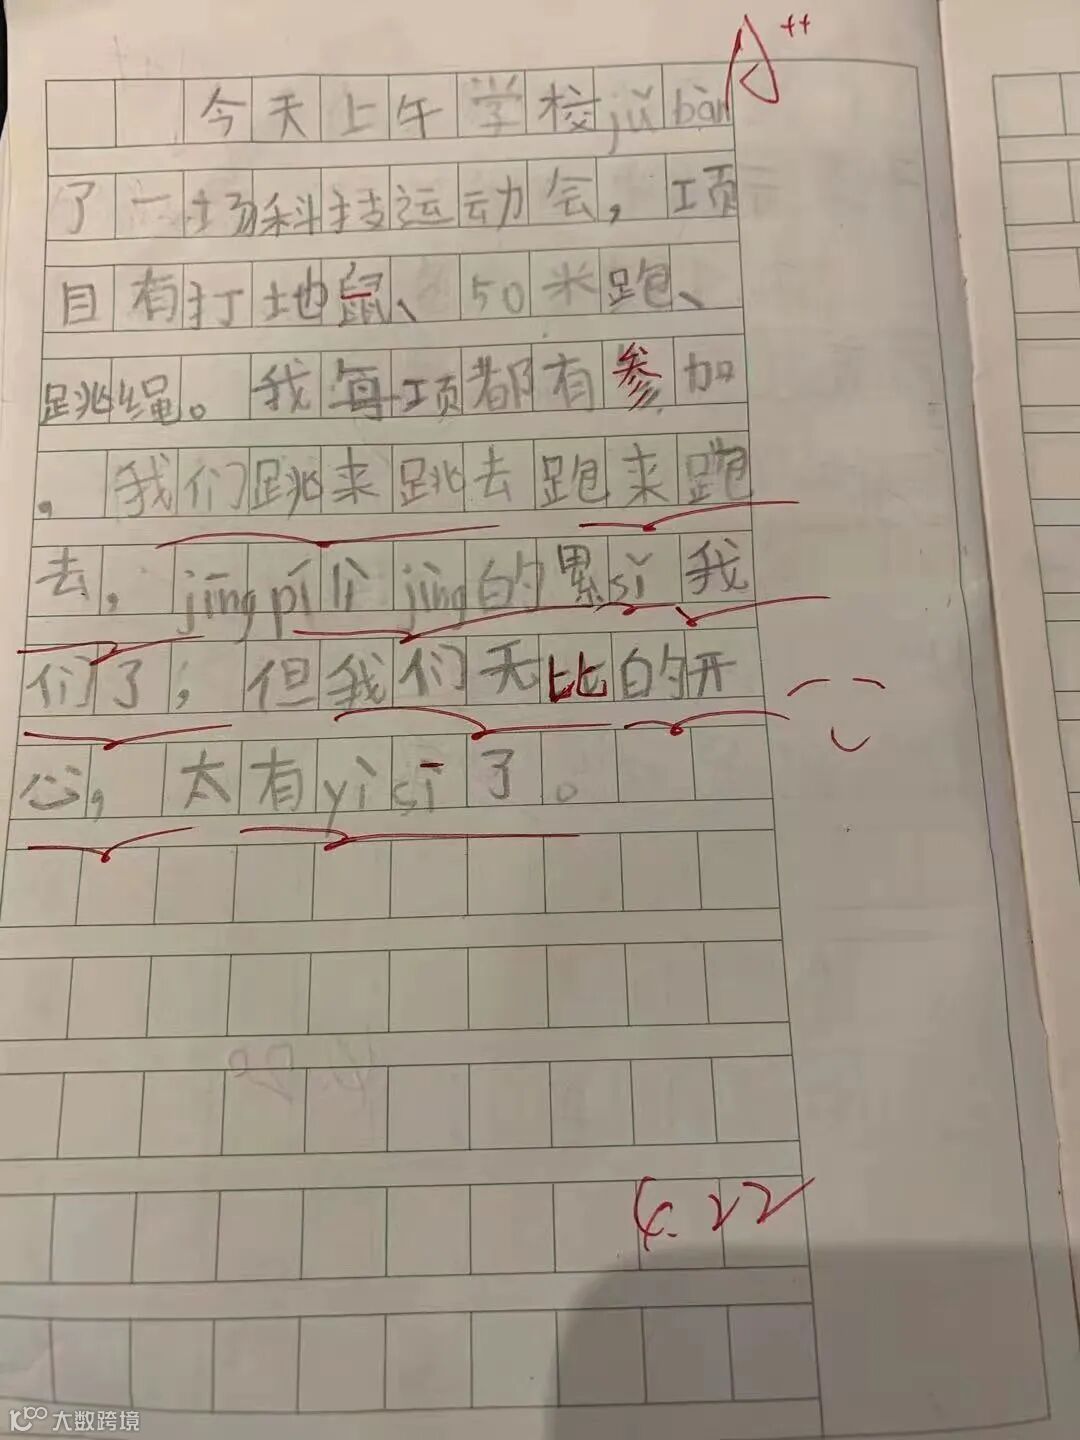 A++
今天上午学校jǔ bàn
了一场科技运动会，项
目有打地鼠、50米跑、
跳绳。我每项都有参加
。我们跳来跳去跑来跑
去，jīng pí lì jìng的累sǐ我
们了；但我们无比的开
心，太有yì sī了。
4.22
大数跨境